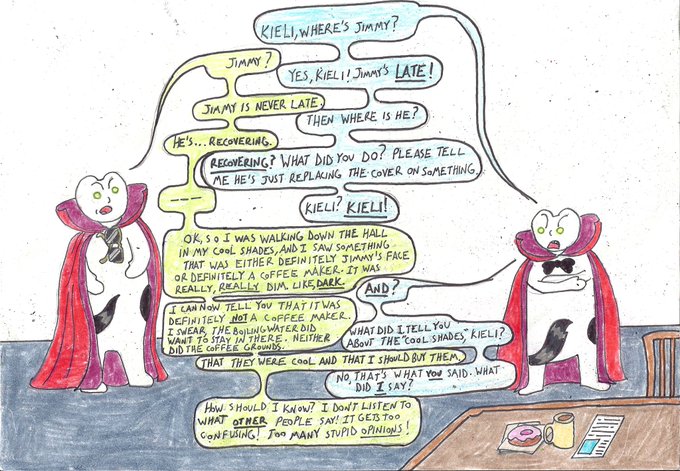 KIELI, WHERE'S JIMMY?
JIMMY?
YES, KIELI! JIMMY'S LATE!
JIMMY IS NEVER LATE.
THEN WHERE IS HE?
HE'S... RECOVERING.
RECOVERING? WHAT DID YOU DO? PLEASE TELL
ME HE'S JUST REPLACING THE COVER ON SOMETHING.
---
KIELI? KIELI!
OK, SO I WAS WALKING DOWN THE HALL
IN MY COOL SHADES, AND I SAW SOMETHING
THAT WAS EITHER DEFINITELY JIMMY'S FACE
OR DEFINITELY A COFFEE MAKER. IT WAS
REALLY, REALLY DIM. LIKE, DARK.
AND?
I CAN NOW TELL YOU THAT IT WAS
DEFINITELY NOT A COFFEE MAKER.
I SWEAR, THE BOILING WATER DID
WANT TO STAY IN THERE. NEITHER
DID THE COFFEE GROUNDS.
WHAT DID I TELL YOU
ABOUT THE "COOL SHADES," KIELI?
THAT THEY WERE COOL AND THAT I SHOULD BUY THEM.
NO, THAT'S WHAT YOU SAID. WHAT
DID I SAY?
HOW SHOULD I KNOW? I DON'T LISTEN TO
WHAT OTHER PEOPLE SAY! IT GETS TOO
CONFUSING! TOO MANY STUPID OPINIONS!